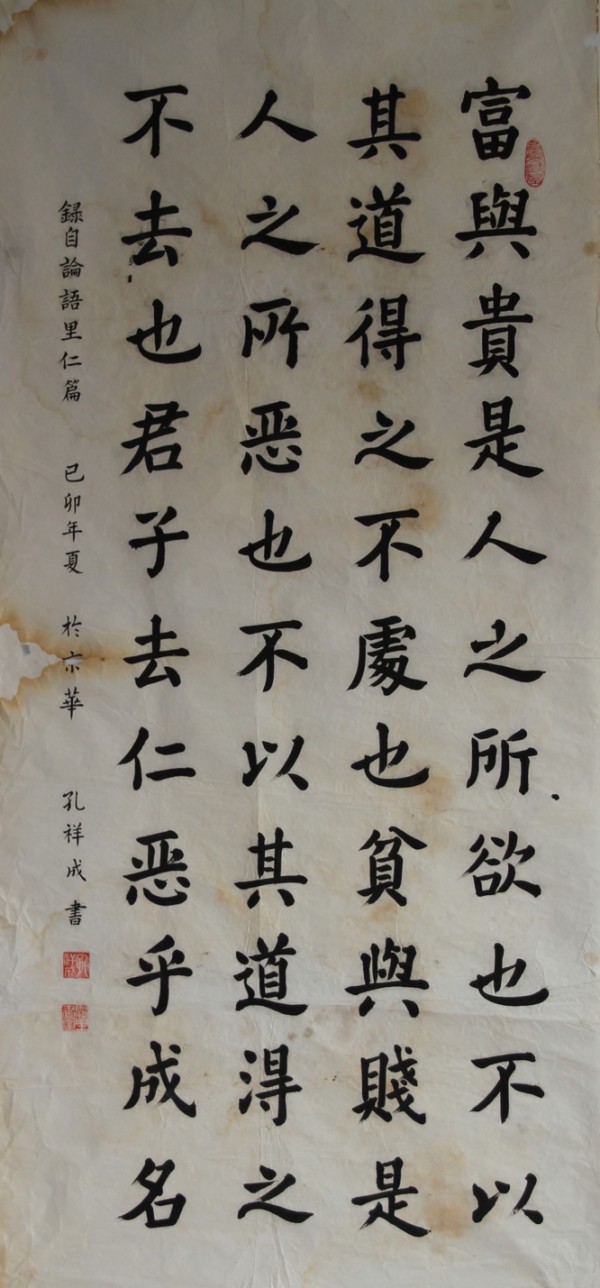 富與貴是人之所欲也不以
其道得之不處也貧與賤是
人之所恶也不以其道淂之
不去也君子去仁恶乎成名
録自論語里仁篇 己卯年夏 於京華 孔祥成書